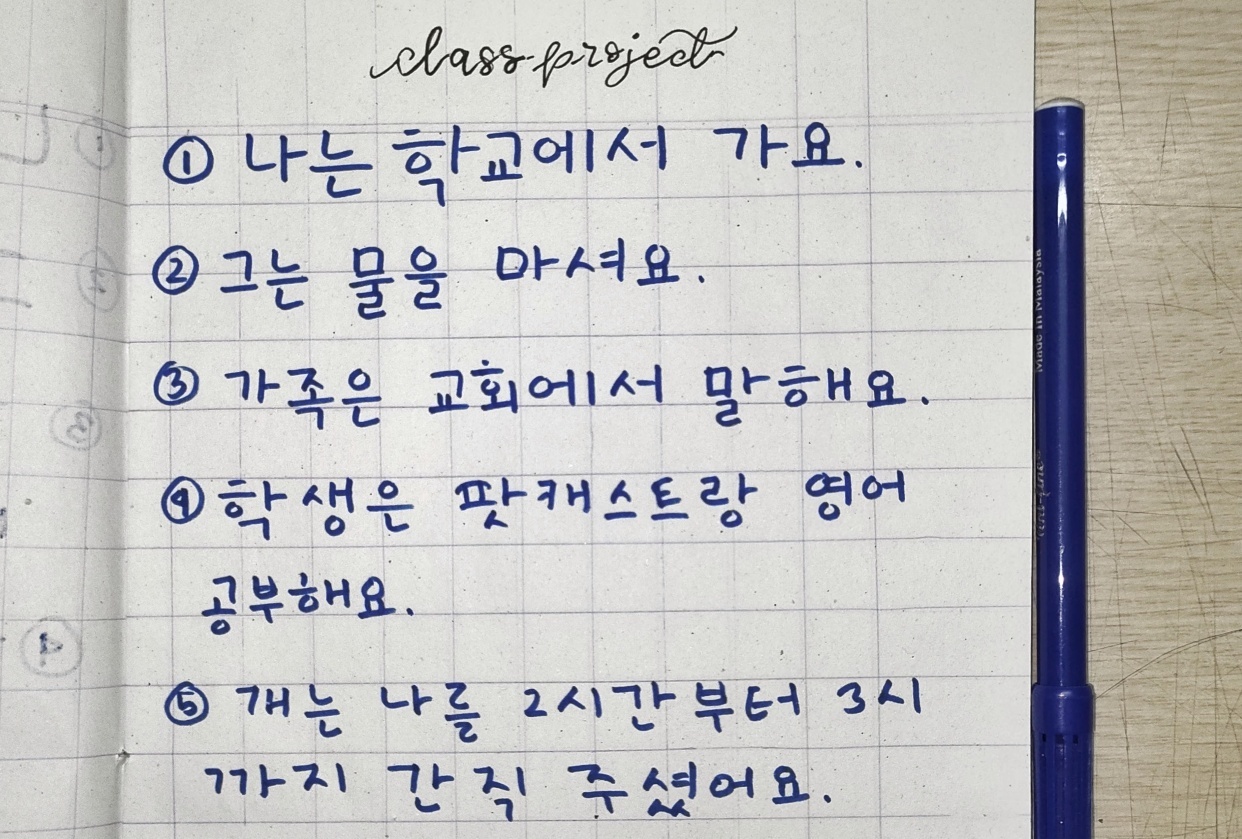 class project
① 나는 학교에서 가요.
② 그는 물을 마셔요.
③ 가족은 교회에서 말해요.
④ 학생은 팟캐스트랑 영어
공부해요.
⑤ 개는 나를 2시간부터 3시
까지 간직 주셨어요.
Made in Malaysia